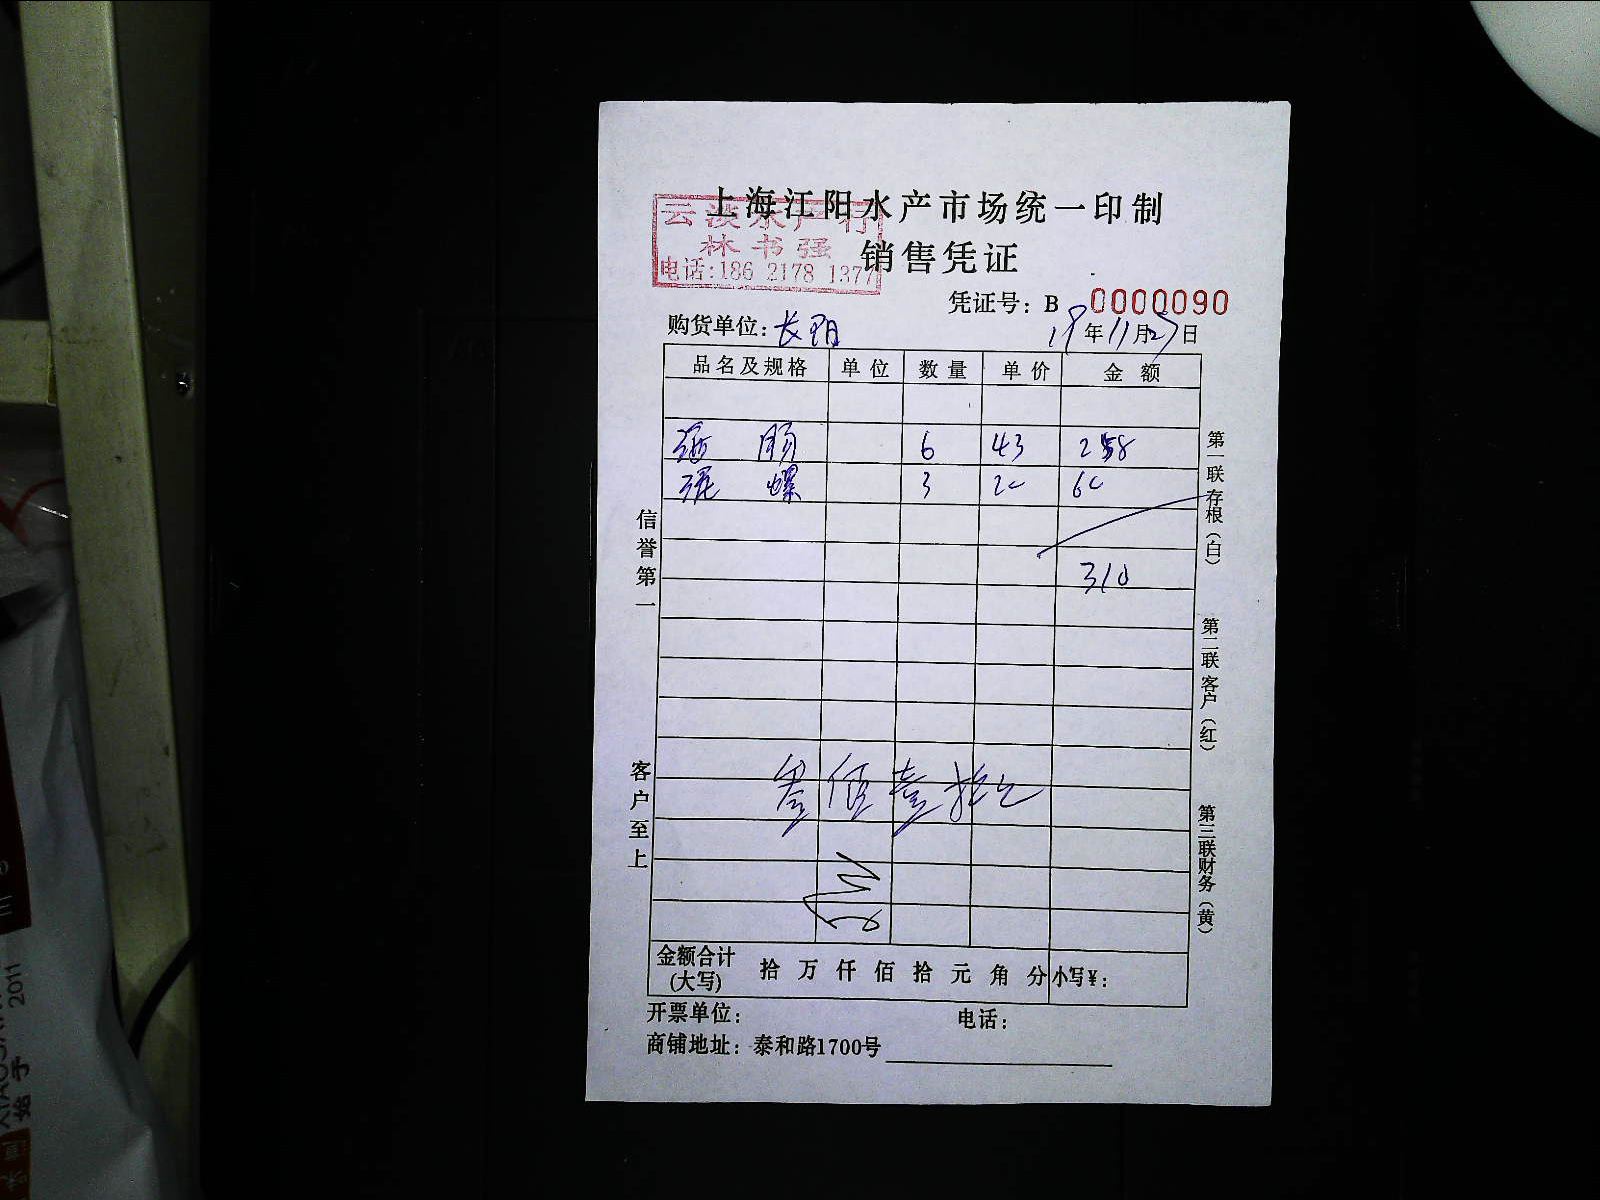 上海江阳水产市场统一印制
云波水产行
林书强
销售凭证
电话:186 2178 1377
凭证号: B 0000090
购货单位: 长阳 19年11月27日
品名及规格 单位 数量 单价 金额
海肠 6 43 258
泥螺 3 20 60
310
叁佰壹拾元
信誉第一
客户至上
第一联存根(白)
第二联客户(红)
第三联财务(黄)
金额合计(大写) 拾 万 仟 佰 拾 元 角 分 小写¥:
开票单位: 电话:
商铺地址: 泰和路1700号
2011